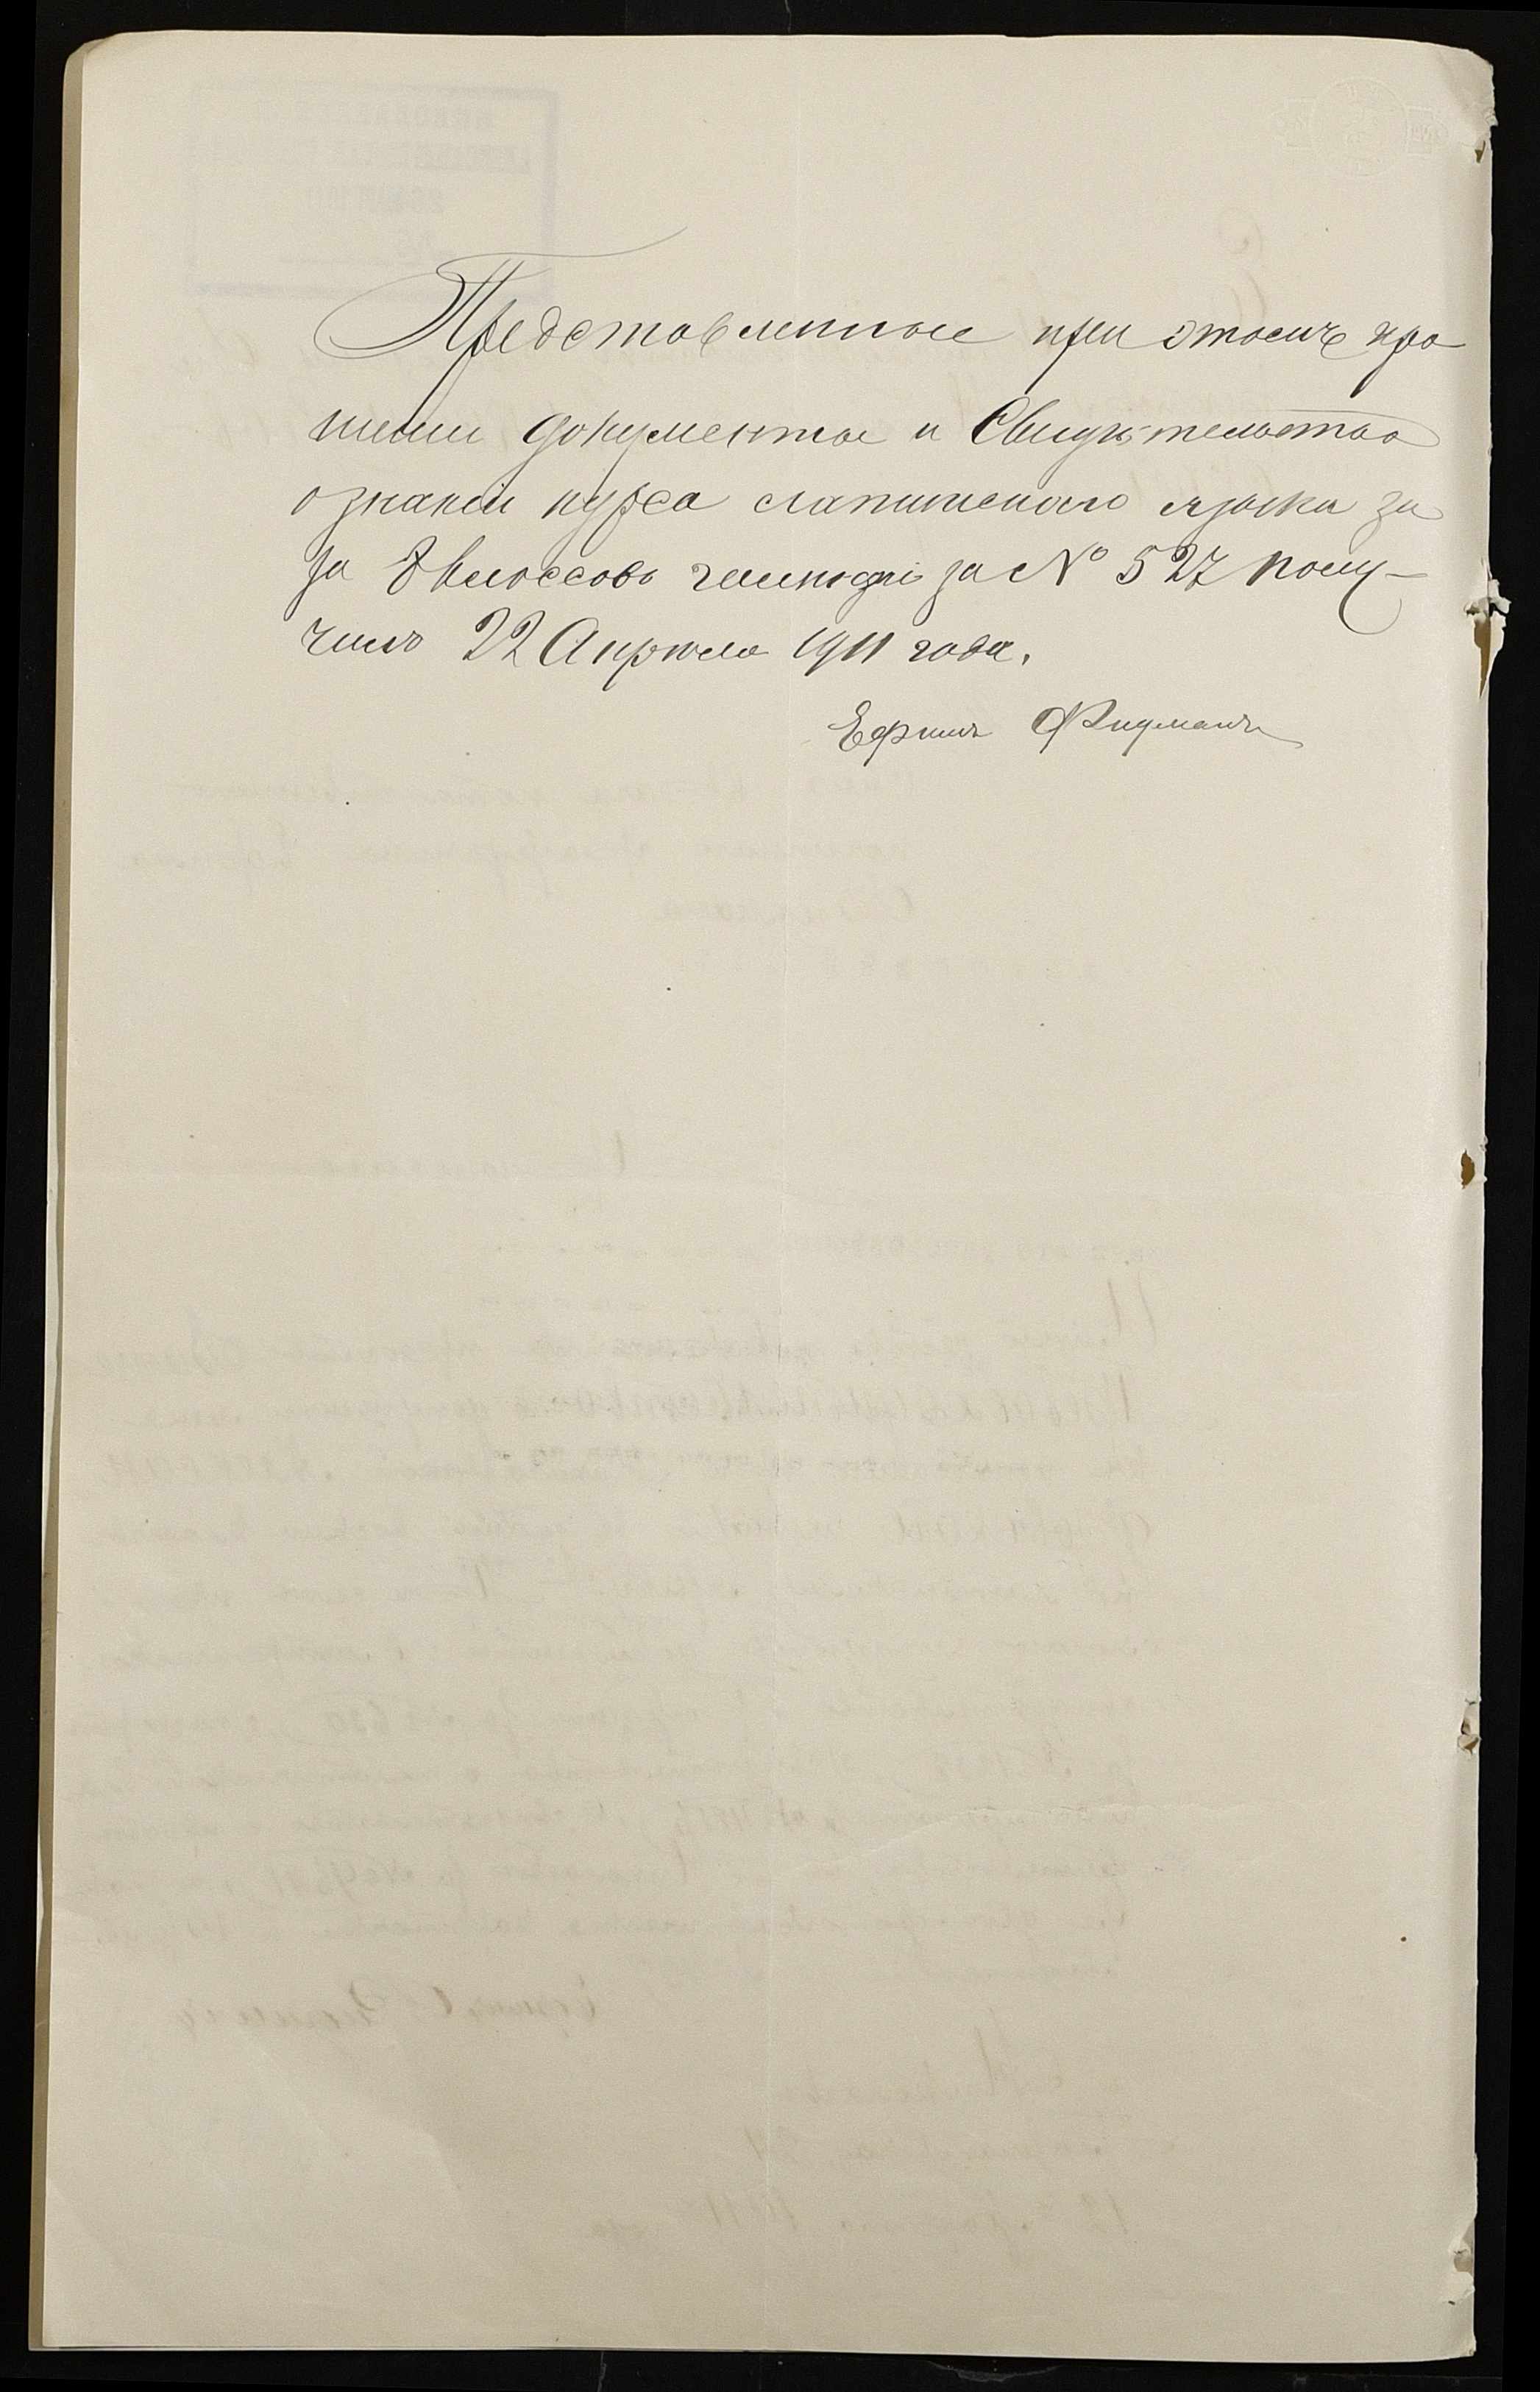 Представленные при этомъ про
шении документы и Свидѣтельство
о знании курса латинскаго языка за
за 8 классовъ гимназіи за № 527 полу-
чилъ 22 Апрѣля 1911 года.
Ефимъ Фидманъ